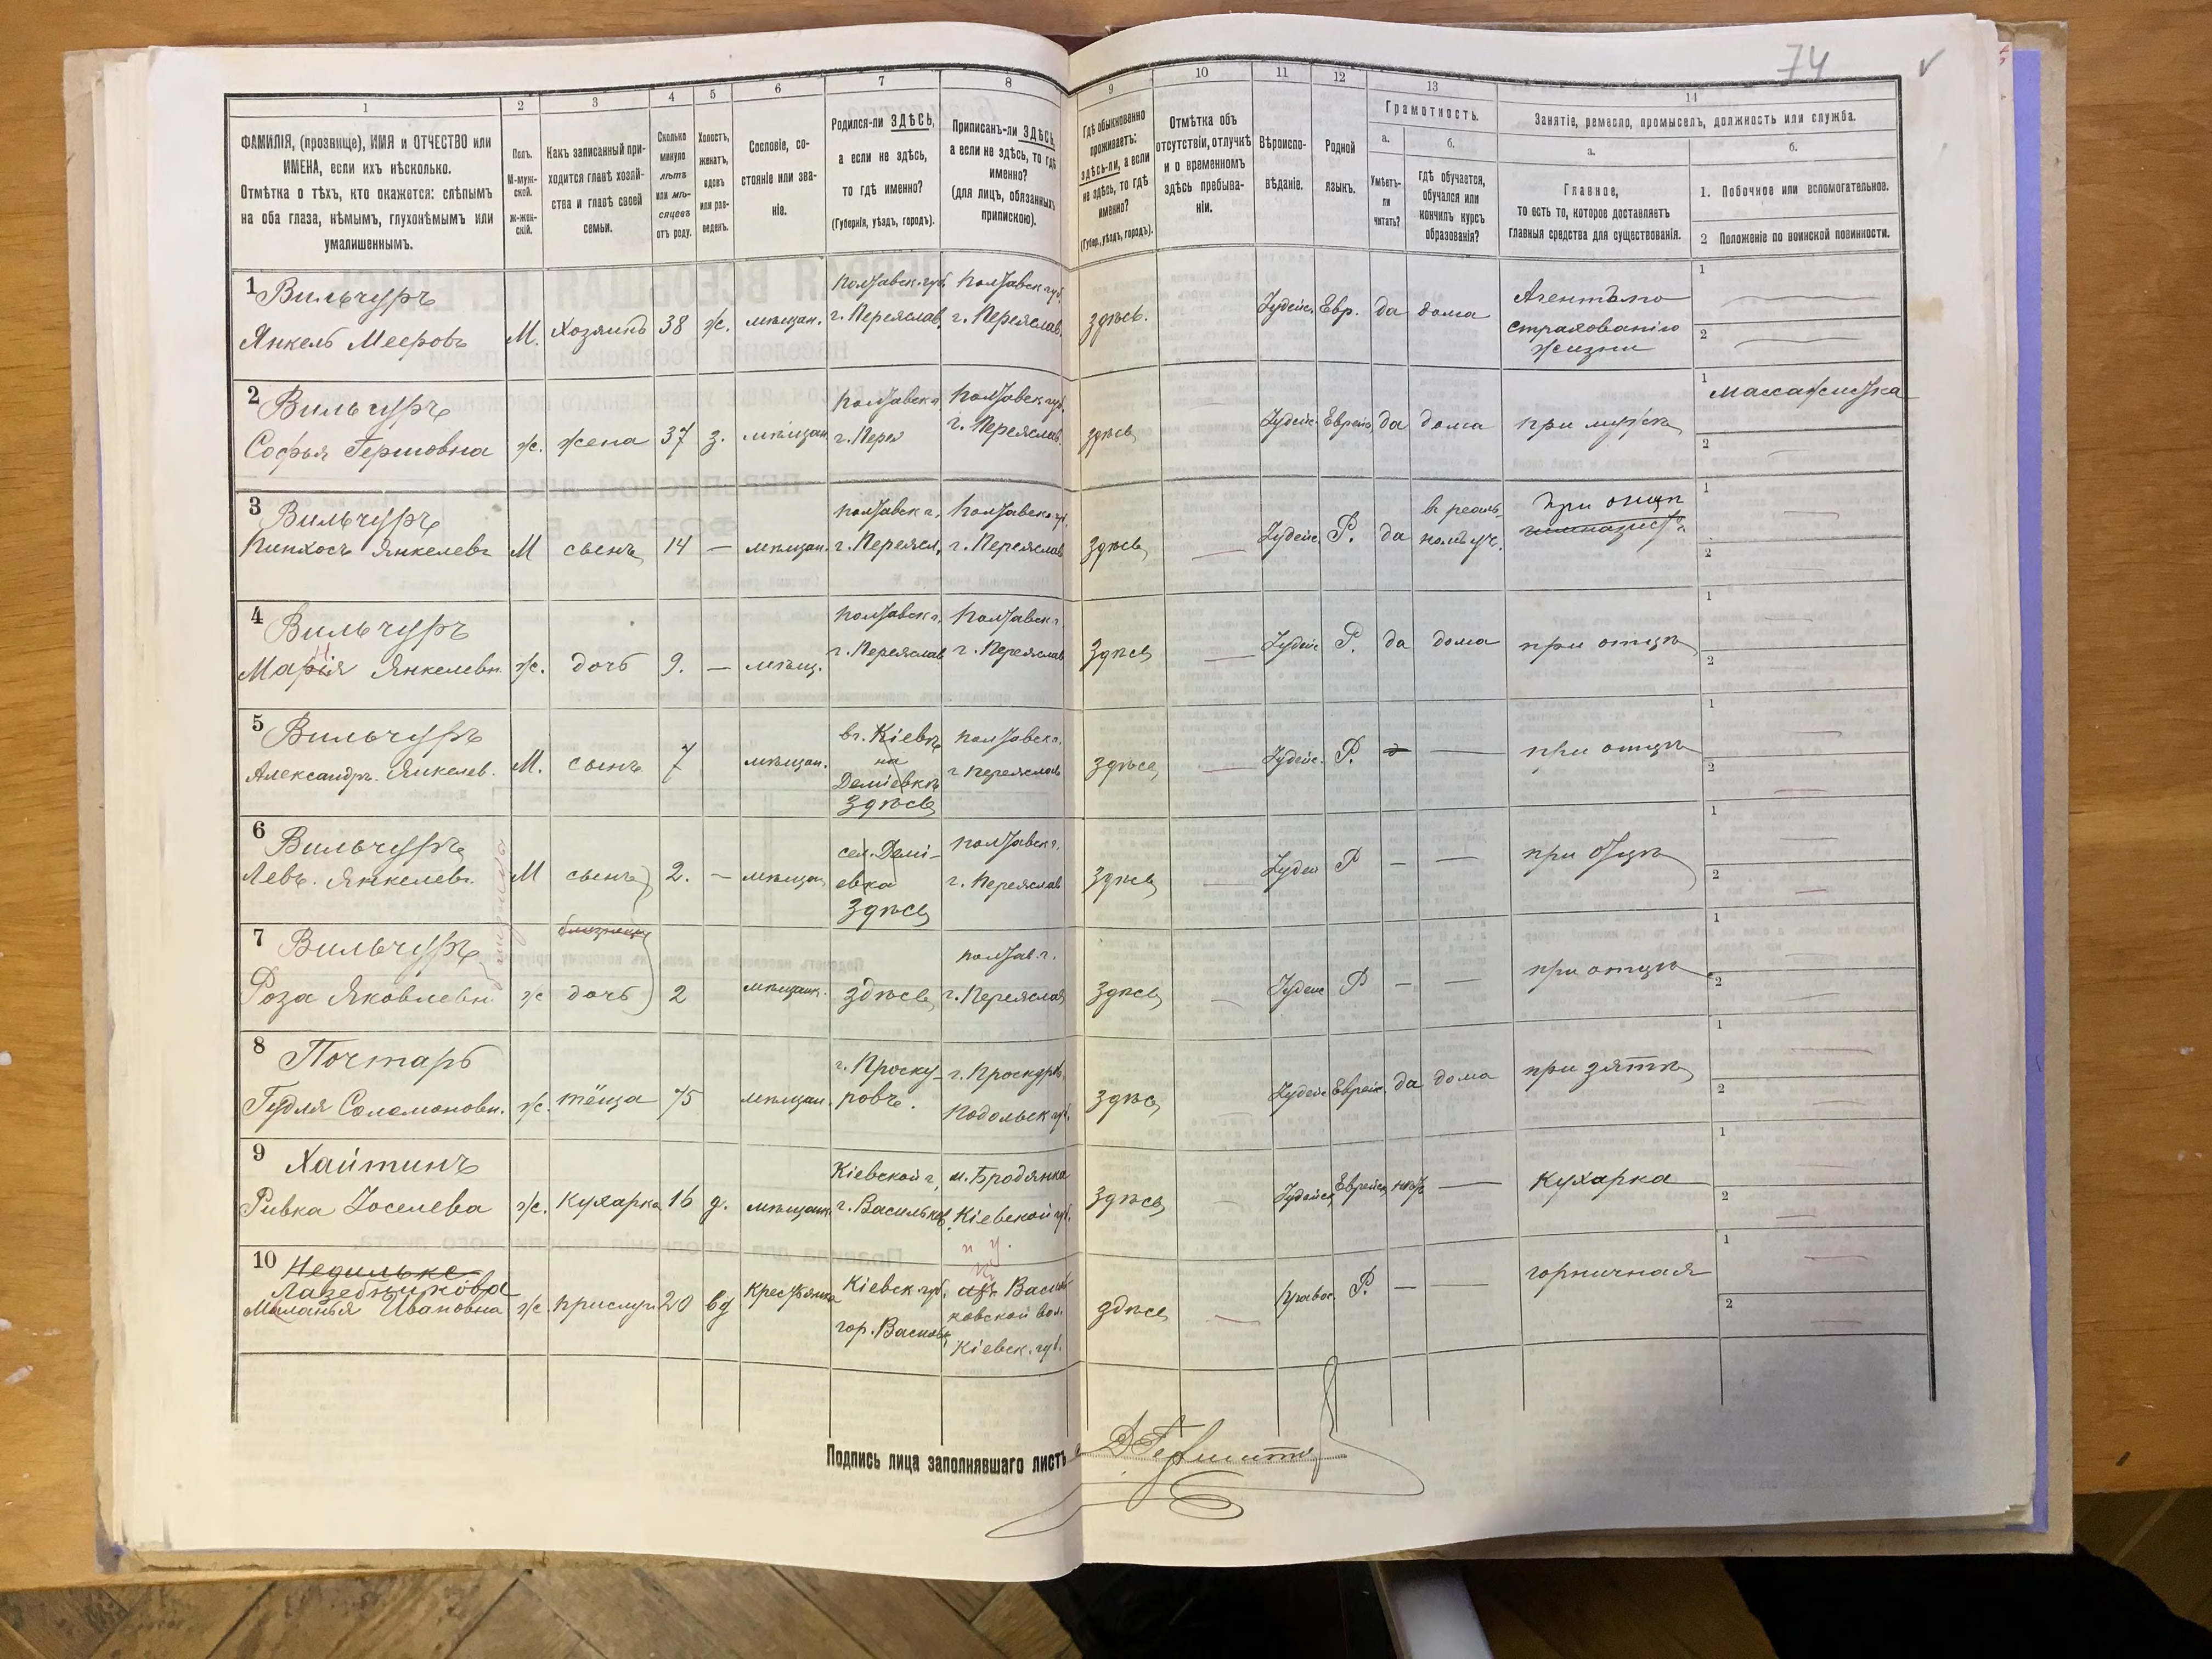 74
1 2 3 4 5 6 7 8 9 10 11 12 13 14
ФАМИЛІЯ, (прозвище), ИМЯ и ОТЧЕСТВО или
ИМЕНА, если ихъ нѣсколько.
Отмѣтка о тѣхъ, кто окажется: слѣпымъ
на оба глаза, нѣмымъ, глухонѣмымъ или
умалишеннымъ.
Полъ.
М-муж-
ской.
ж-жен-
скій.
Какъ записанный при-
ходится главѣ хозяй-
ства и главѣ своей
семьи.
Сколько
минуло
лѣтъ
или мѣ-
сяцевъ
отъ роду.
Холостъ,
женатъ,
вдовъ
или раз-
веденъ.
Сословіе, со-
стояніе или зва-
ніе.
Родился-ли ЗДѢСЬ,
а если не здѣсь,
то гдѣ именно?
(Губернія, уѣздъ, городъ).
Приписанъ-ли ЗДѢСЬ,
а если не здѣсь, то гдѣ
именно?
(для лицъ, обязанныхъ
припискою).
Гдѣ обыкновенно
проживаетъ:
здѣсь-ли, а если
не здѣсь, то гдѣ
именно?
(Губер., уѣздъ, городъ).
Отмѣтка объ
отсутствіи, отлучкѣ
и о временномъ
здѣсь пребыва-
ніи.
Вѣроиспо-
вѣданіе.
Родной
языкъ.
Грамотность.
а.
Умѣетъ-
ли
читать?
б.
гдѣ обучается,
обучался или
кончилъ курсъ
образованія?
Занятіе, ремесло, промыселъ, должность или служба.
а.
Главное,
то есть то, которое доставляетъ
главныя средства для существованія.
б.
1. Побочное или вспомогательное.
2 Положеніе по воинской повинности.
1 Вильчуръ
Янкель Мееровъ М. Хозяинъ 38 ж. мѣщан. Полтавск. губ. г. Переяслав. Полтавск. губ. г. Переяслав. здѣсь. Іудейс. Евр. да дома Агентъ по страхованію жизни 1 2
2 Вильчуръ
Софья Гершовна ж. жена 37 з. мѣщан. Полтавск. г. Перея Полтавск. губ. г. Переяслав. здѣсь Іудейс. Еврейс. да дома при мужѣ 1 Массажистка 2
3 Вильчуръ
Пинхосъ Янкелевъ М сынъ 14 — мѣщан. Полтавск г. г. Переясл. Полтавск. губ. г. Переяслав здѣсь — Іудейс. Р. да в реальномъ уч. При отцѣ 1 2
4 Вильчуръ
Марія Янкелевн. ж. дочь 9. — мѣщ. Полтавск г. г. Переяслав Полтавск г. г. Переяслав здѣсь — Іудейс Р. да дома при отцѣ 1 2
5 Вильчуръ
Александръ. Янкелев. М. сынъ 7 мѣщан. вг. Кіевѣ на Деміевкѣ здѣсь Полтавск г. г Переяслав здѣсь — Іудейс. Р. — при отцѣ 1 2
6 Вильчуръ
Левъ. Янкелевъ. М сынъ 2. — мѣщан сел. Демі-евка здѣсь Полтавск г. г. Переяслав здѣсь — Іудей Р — — при отцѣ 1 2
близнецы
7 Вильчуръ
Роза Яковлевн ж дочь 2 мѣщанк. здѣсь Полтав. г. г. Переяслав здѣсь — Іудейс Р — — при отцѣ 1 2
8 Почтарь
Гудля Соломоновн. ж. тёща 75 мѣщан. г. Проску-ровъ. г. Проскуровъ Подольск губ. здѣсь Іудейс Еврейск. да дома при зятѣ 1 2
9 Хайтинъ
Ривка Іоселева ж. кухарка 16 д. мѣщанк. Кіевской г. г. Васильков м. Бродянка Кіевской губ. здѣсь — Іудейск Еврейск нѣтъ — Кухарка 1 2
10 Недилько
Лазебникова
Маланья Ивановна ж. прислуг. 20 вд Крестьянка Кіевск. губ. гор. Васильк Василь-ковской вол. Кіевск. губ. здѣсь — Правос. Р. — — горничная 1 2
Подпись лица заполнявшаго листъ